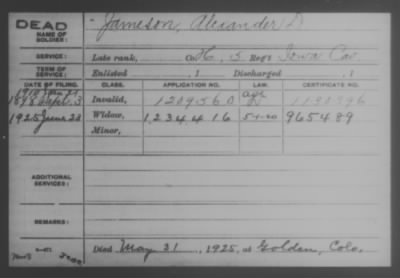 DEAD
NAME OF SOLDIER: Jameson, Alexander D
SERVICE: Late rank, Co H, 5 Reg't Iowa Cav.
TERM OF SERVICE: Enlisted , 1 Discharged , 1
DATE OF FILING. CLASS. APPLICATION NO. LAW. CERTIFICATE NO.
1910 Jan
1898 Sept. 3 Invalid, 1209560 age
1925 June 23 Widow, 1234416 5-1-20 965489
Minor,
ADDITIONAL SERVICES:
REMARKS:
Died May 31, 1925, at Golden, Colo.